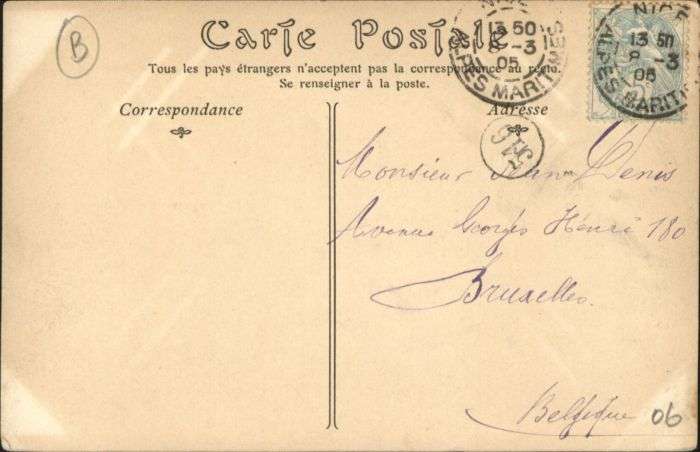 B
Carte Postale
Tous les pays étrangers n'acceptent pas la correspondance au recto.
Se renseigner à la poste.
Correspondance
Adresse
13 50
8 -3
05
ALPES MARITIMES
NICE
13 50
8 -3
05
ALPES MARIT
Monsieur Denis
Avenue Georges Henri 180
Bruxelles.
Belgique
06